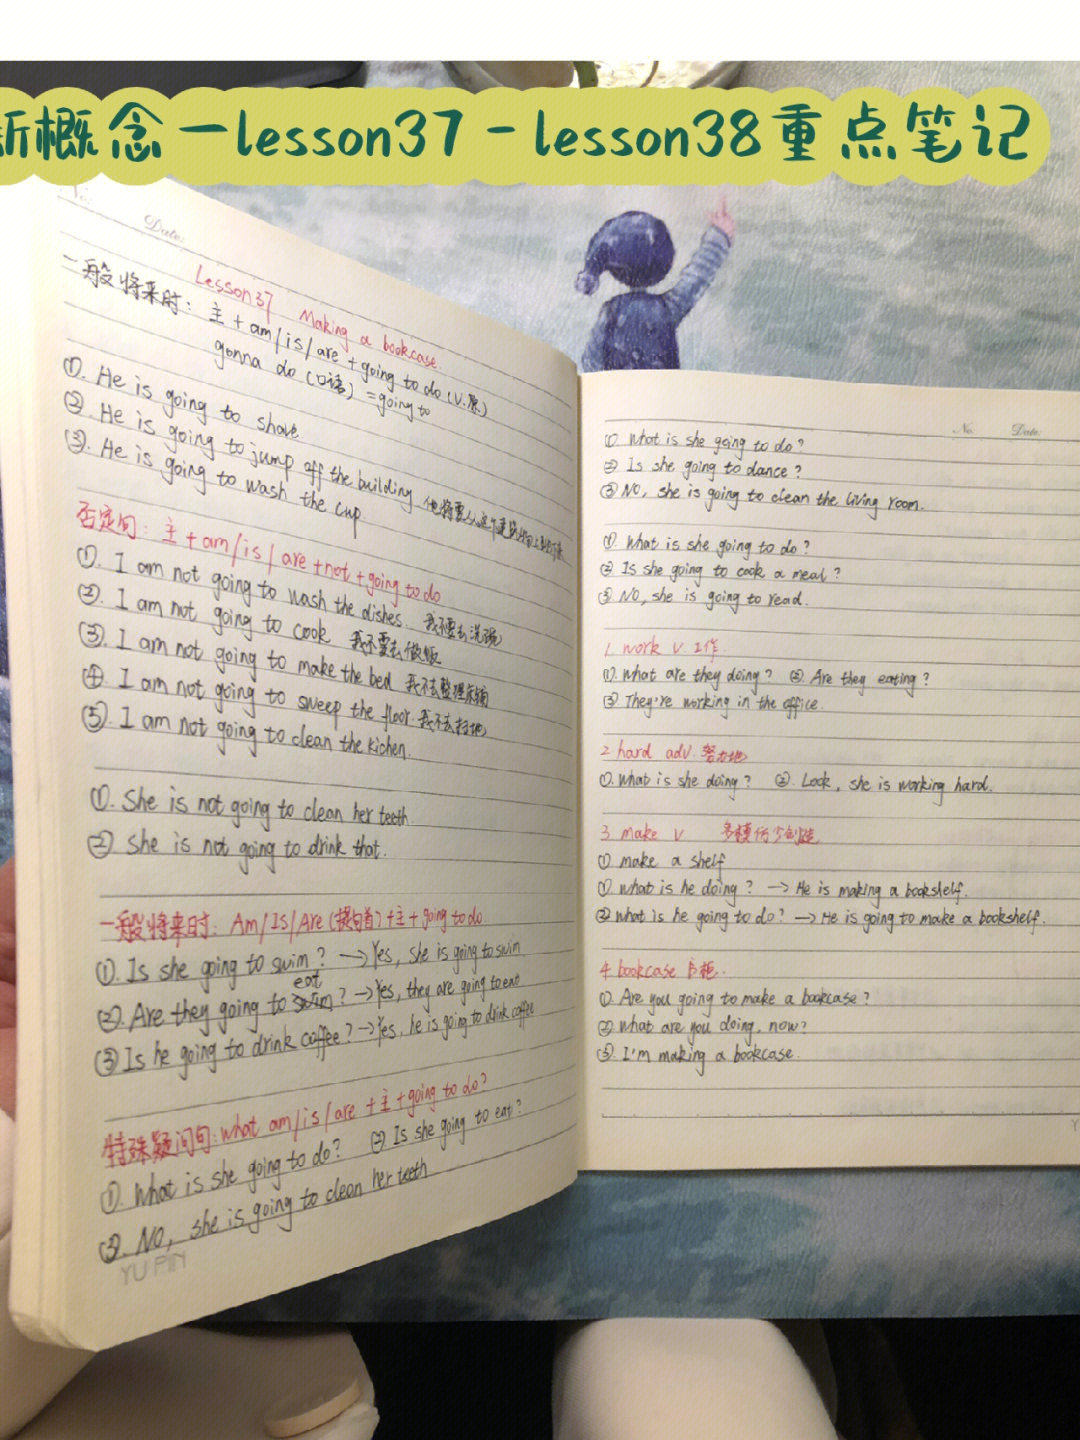 新概念一lesson37-lesson38重点笔记
No:
Date:
Lesson37 Making a bookcase.
一般将来时: 主+am/is/are+going to do (V.原)
gonna do (口语) =going to
①. He is going to shave
②. He is going to jump off the building 他将要从这个建筑物上
③. He is going to wash the cup
否定句: 主+am/is/are+not+going to do
①. I am not going to wash the dishes. 我不要去洗碗
②. I am not going to cook 我不要去做饭
③. I am not going to make the bed 我不去整理床铺
④. I am not going to sweep the floor. 我不去扫地
⑤. I am not going to clean the kichen.
①. She is not going to clean her teeth.
②. She is not going to drink that.
一般将来时: Am/Is/Are(提句首)+主+going to do.
①. Is she going to swim? → Yes, she is going to swim.
eat
②. Are they going to swim? → Yes, they are going to eat
③ Is he going to drink coffee? → Yes, he is going to drink coffee
特殊疑问句: what am/is/are +主+going to do?
①. What is she going to do? ② Is she going to eat?
③. NO, she is going to clean her teeth
YU PIN
No.
Date:
①. What is she going to do?
② Is she going to dance?
③ NO, she is going to clean the living room.
①. What is she going to do?
② Is she going to cook a meal?
③. NO, she is going to read.
1. work v. 工作.
①. What are they doing? ②. Are they eating?
③. They're working in the office.
2 hard adv. 努力地
①. What is she doing? ②. Look, she is working hard.
3 make v.
① make a shelf
①. what is he doing? → He is making a bookshelf.
② what is he going to do? → He is going to make a bookshelf.
4 bookcase 书柜.
①. Are you going to make a bookcase?
②. What are you doing, now?
③. I'm making a bookcase.